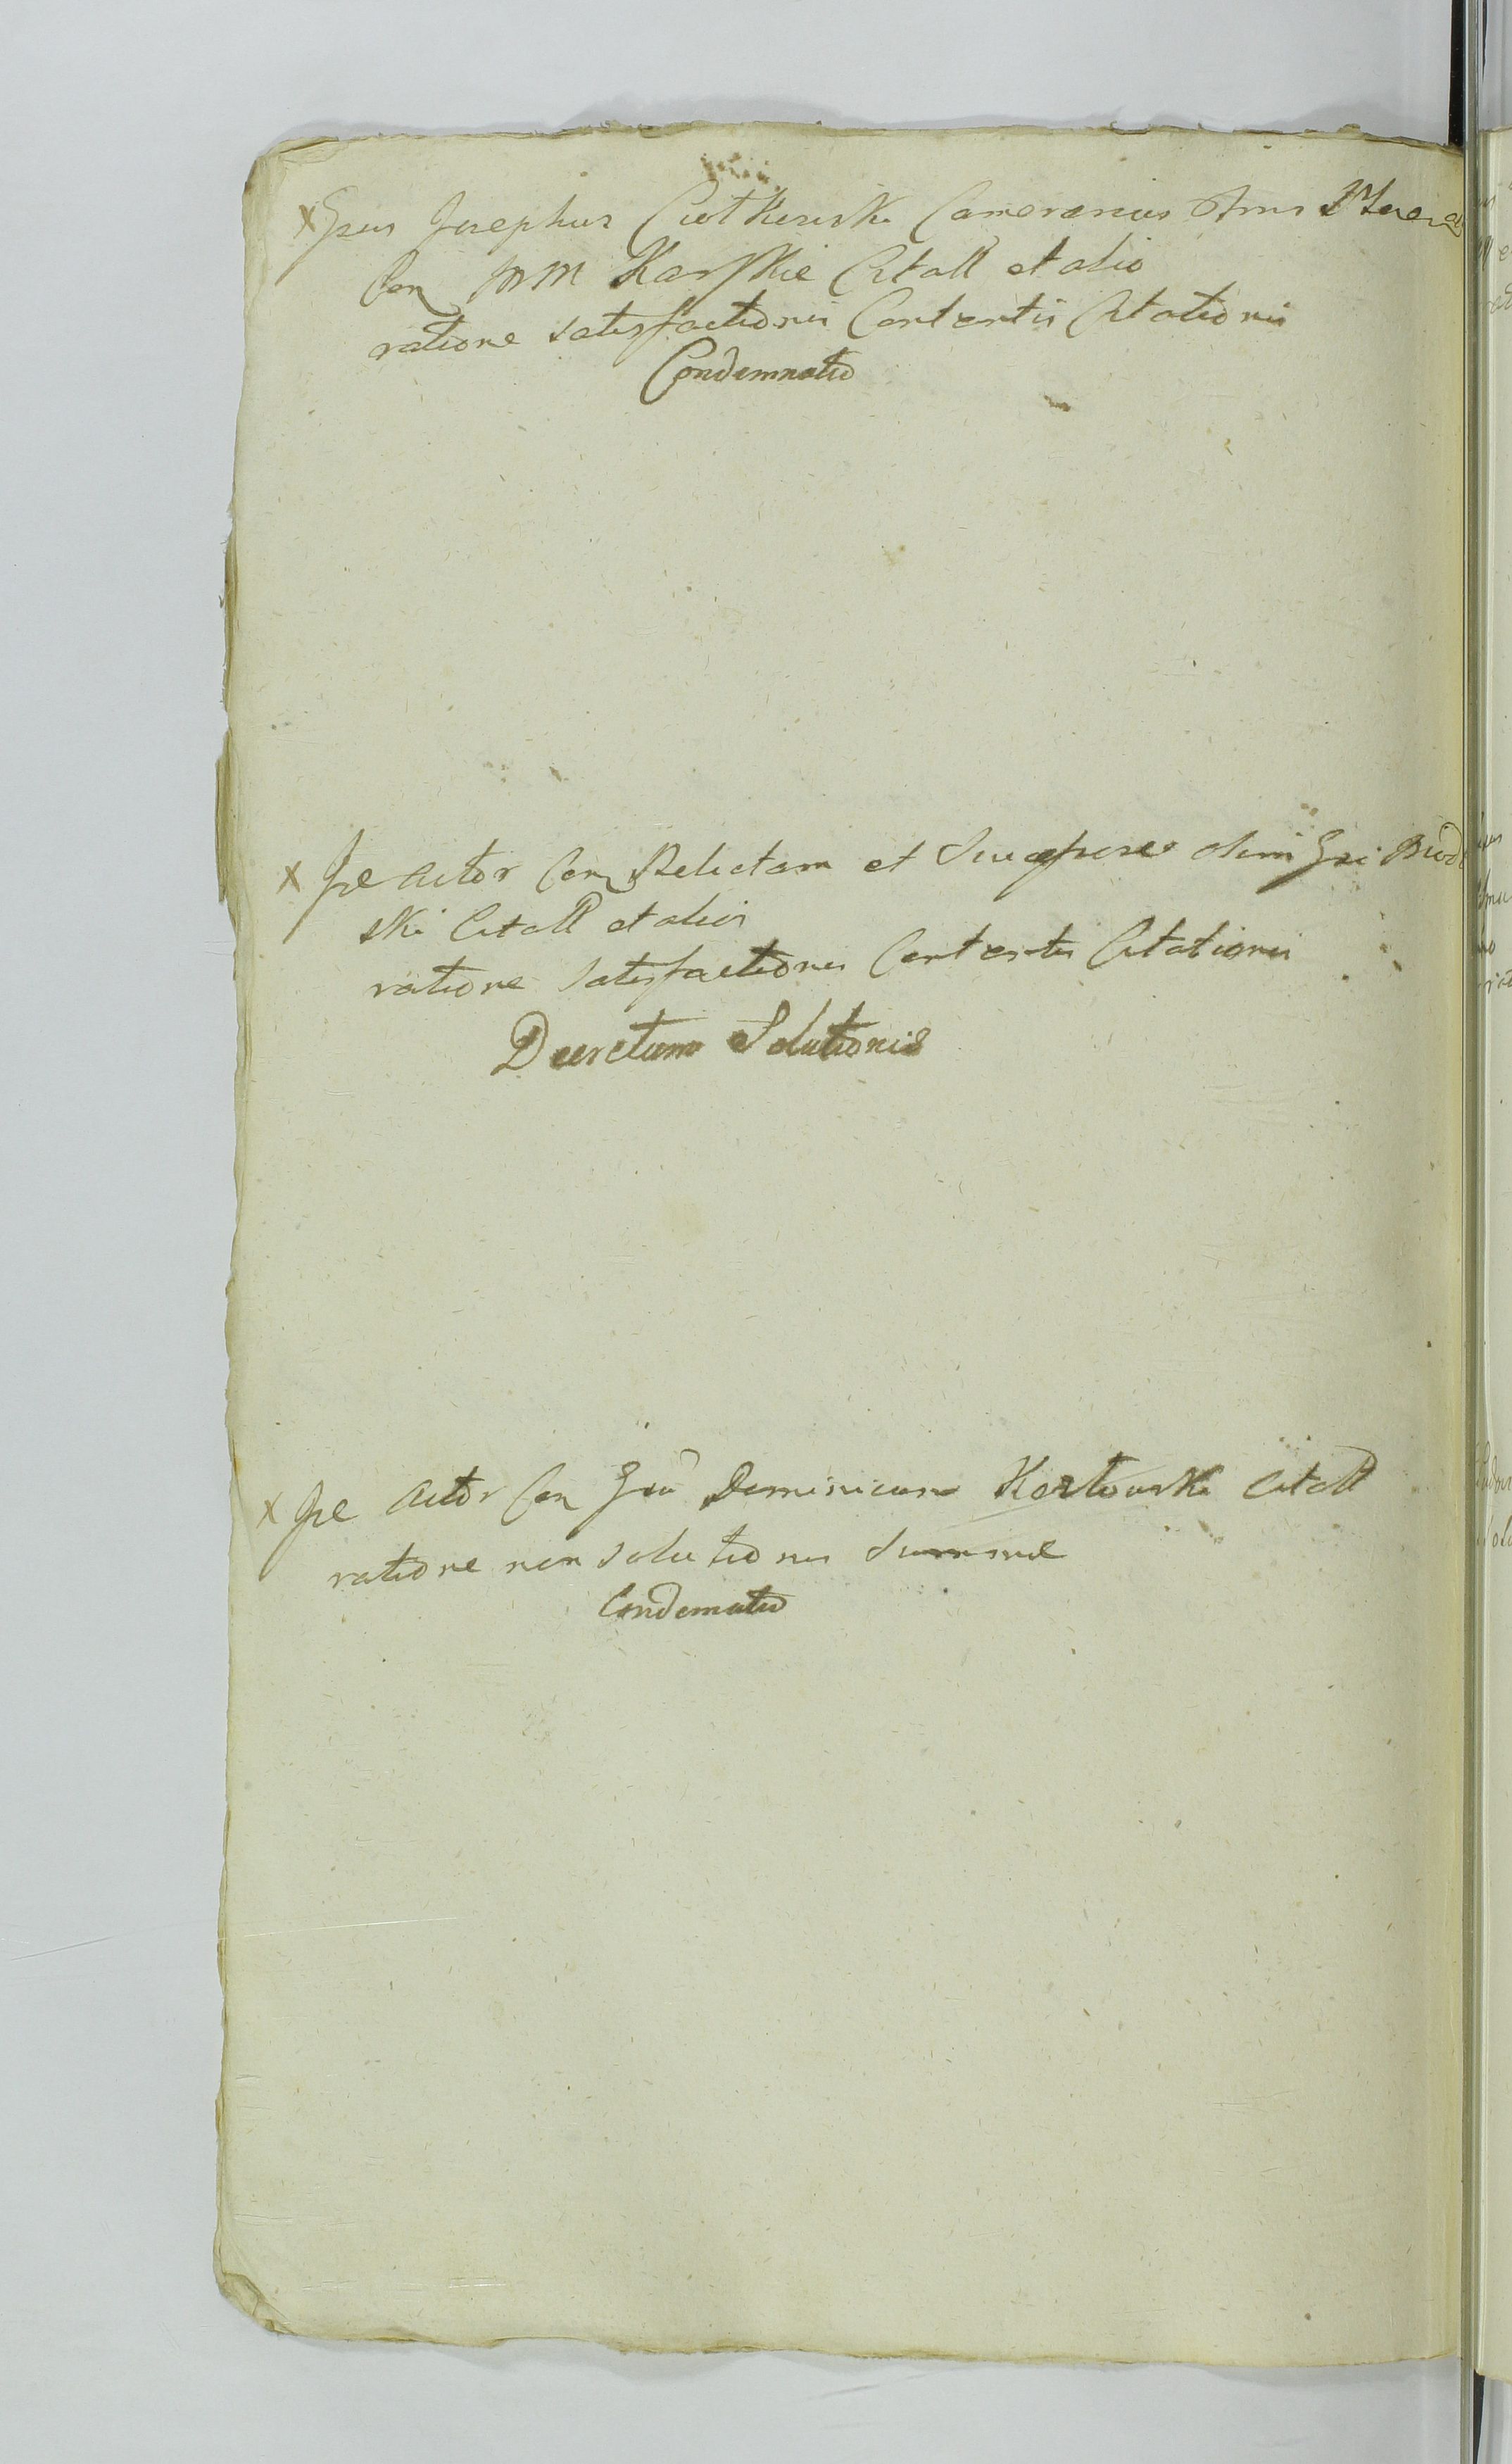 x Gsus Josephus Ciothewski Camerarius
Con MM Karskie Citatt et alio
ratione satisfactionis Contentis Citationis
Condemnatio
x Jse Actor Con Relictam et Successores olim Gsi Brod
ski Citatt et alios
ratione satisfactionis Contentis Citationis
Decretum Solutionis
x Jse Actor Con Gsu Dominicum Kortowski Citatt
ratione non solutionis Summe
Condemnatio